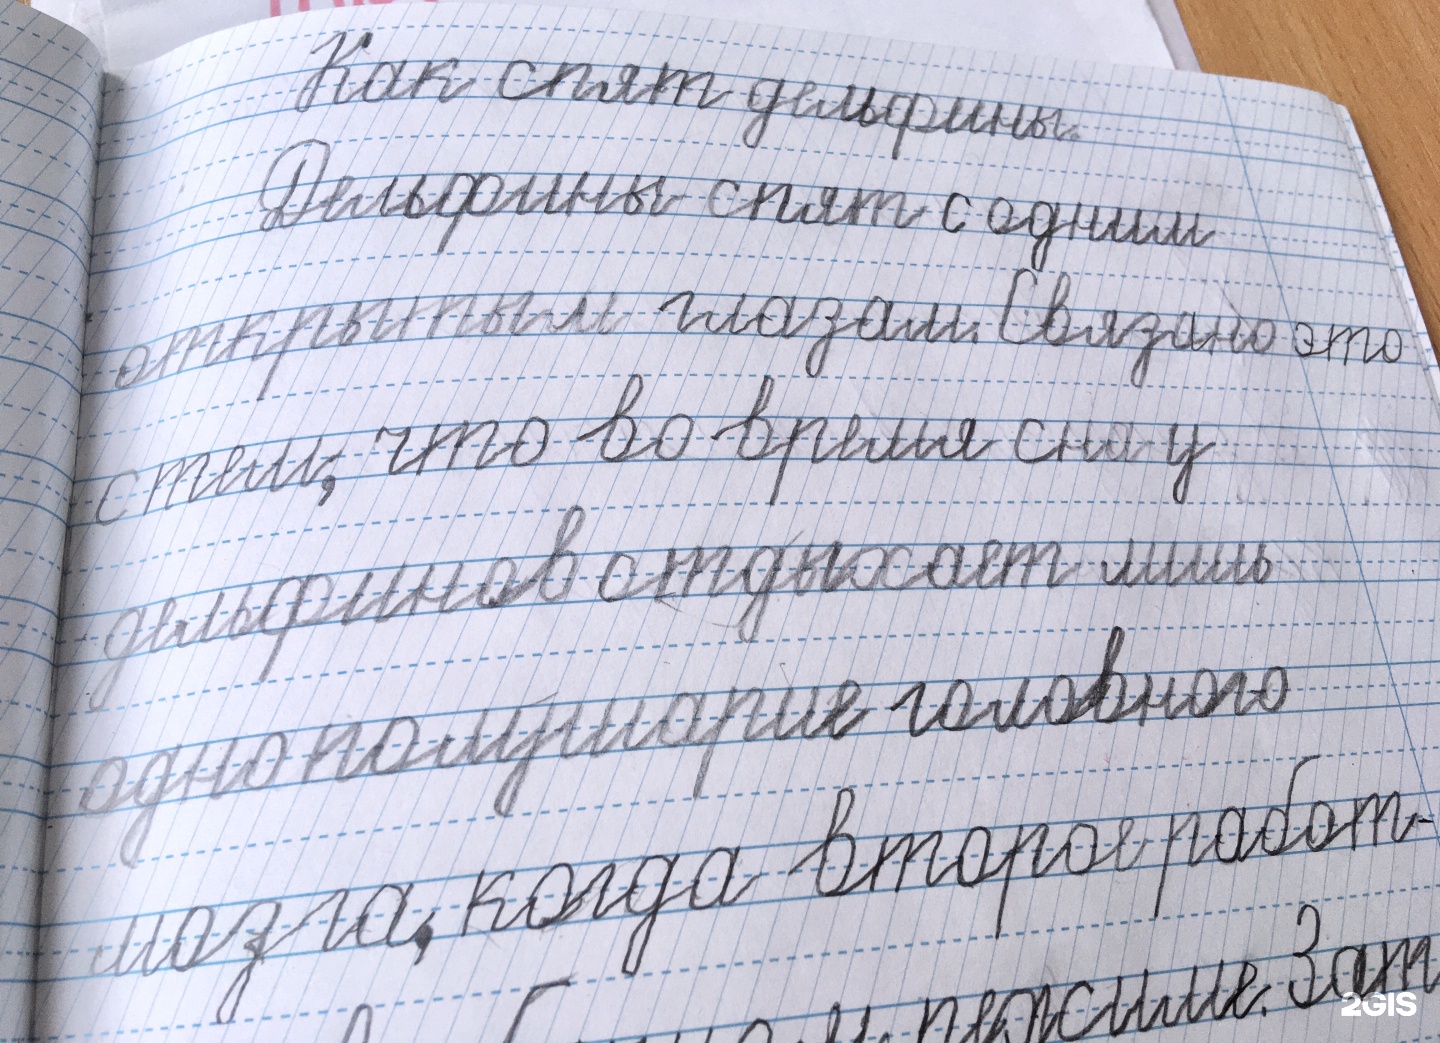 Как спят дельфины.
Дельфины спят с одним
открытым глазам. Связано это
с тем, что во время сна у
дельфинов отдыхает лишь
одно полушарие головного
мозга, когда второе работ-
режиме. Зат
2GIS